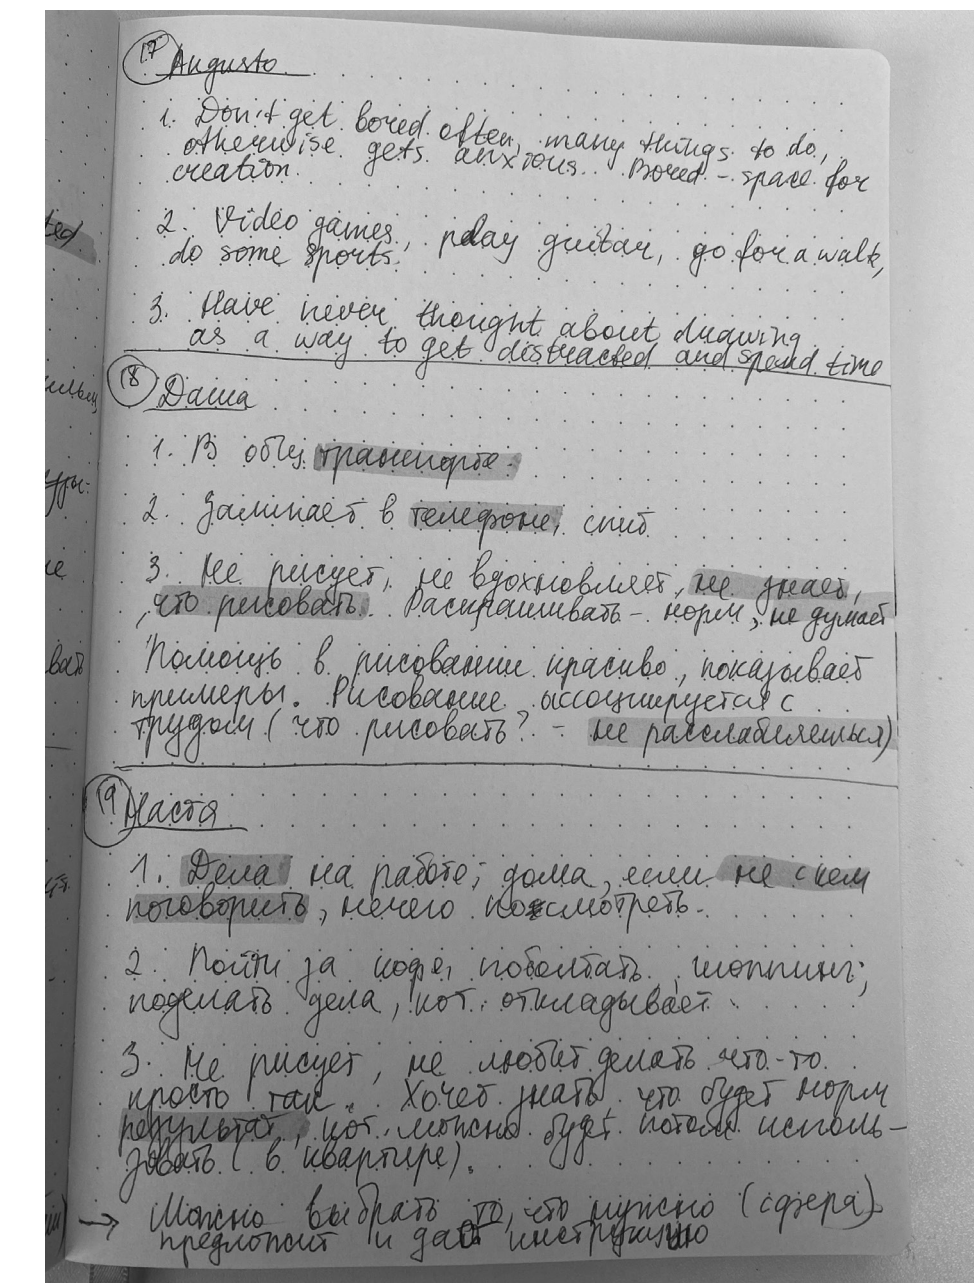 17 Augusto
1. Don't get bored often, many things to do,
otherwise gets anxious. Bored - space for
creation.
2. Video games, play guitar, go for a walk,
do some sports.
3. Have never thought about drawing
as a way to get distracted and spend time
18 Даша
1. В общ. транспорте.
2. Залипает в телефоне, спит
3. Не рисует, не вдохновляет, не знает,
что рисовать. Раскрашивать - норм, не думает
Помощь в рисовании красиво, показывает
примеры. Рисование ассоциируется с
трудом (что рисовать? - не расслабляешься)
19 Настя
1. Дела на работе; дома, если не с кем
поговорить, нечего посмотреть.
2. Пойти за кофе, поболтать, шоппинг;
поделать дела, кот. откладывает.
3. Не рисует, не любит делать что-то
просто так. Хочет знать, что будет норм
результат, кот. можно будет потом исполь-
зовать (в квартире).
→ Можно выбрать то, что нужно (сфера)
предложит и даст инструкцию
ted
вать